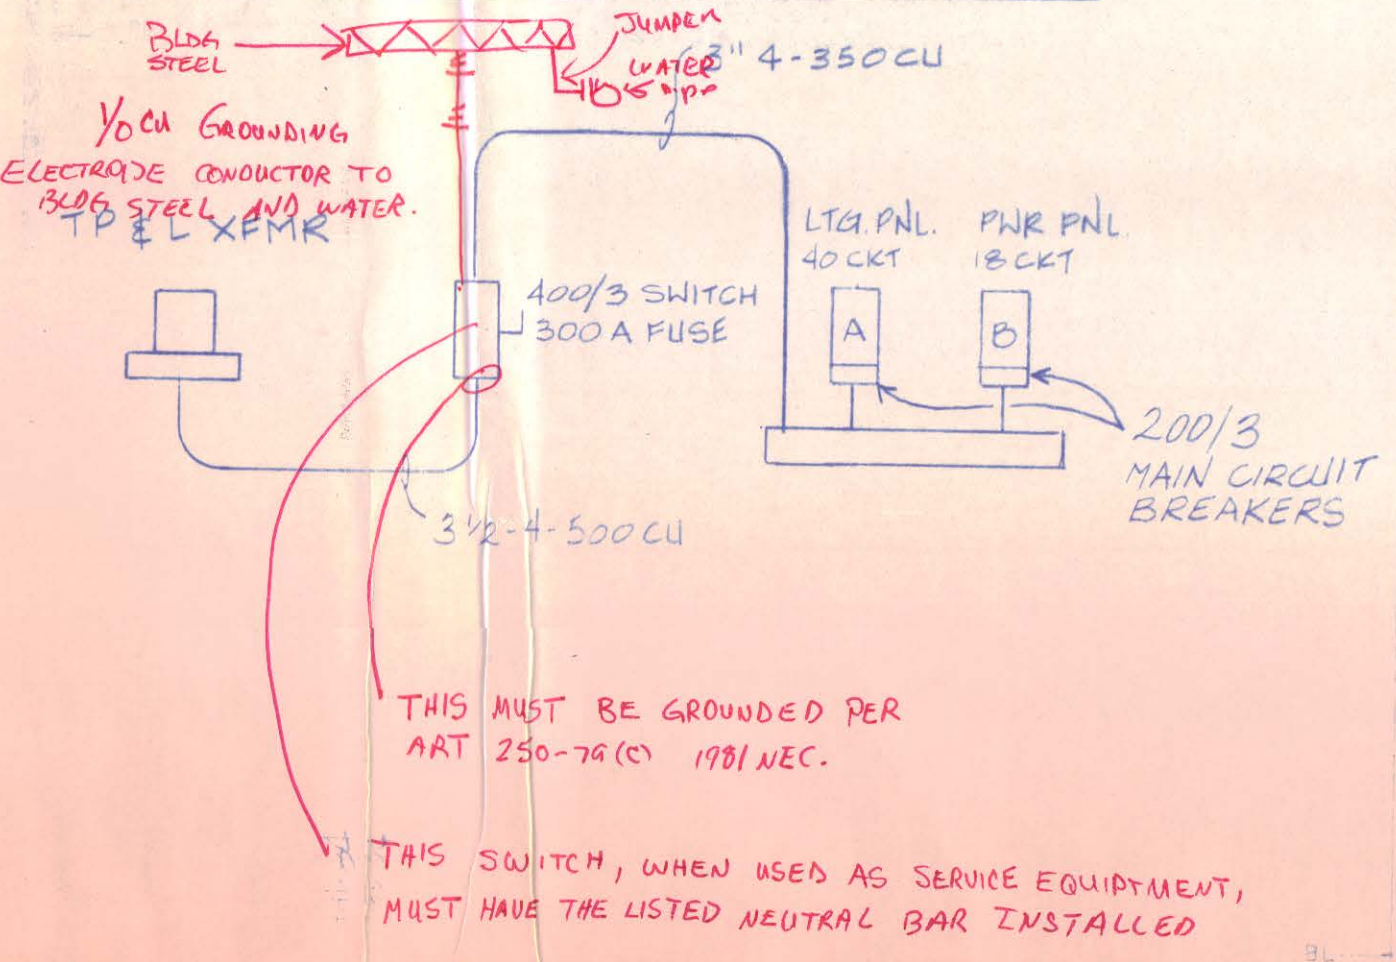 BLDG
STEEL
JUMPER
WATER
PIPE
3" 4-350CU
1/0 CU GROUNDING
ELECTRODE CONDUCTOR TO
BLDG STEEL AND WATER.
TP & L XFMR
LTG. PNL.
40 CKT
PWR PNL.
18 CKT
400/3 SWITCH
300 A FUSE
A
B
200/3
MAIN CIRCUIT
BREAKERS
3 1/2-4-500 CU
THIS MUST BE GROUNDED PER
ART 250-79(C) 1981 NEC.
THIS SWITCH, WHEN USED AS SERVICE EQUIPTMENT,
MUST HAVE THE LISTED NEUTRAL BAR INSTALLED